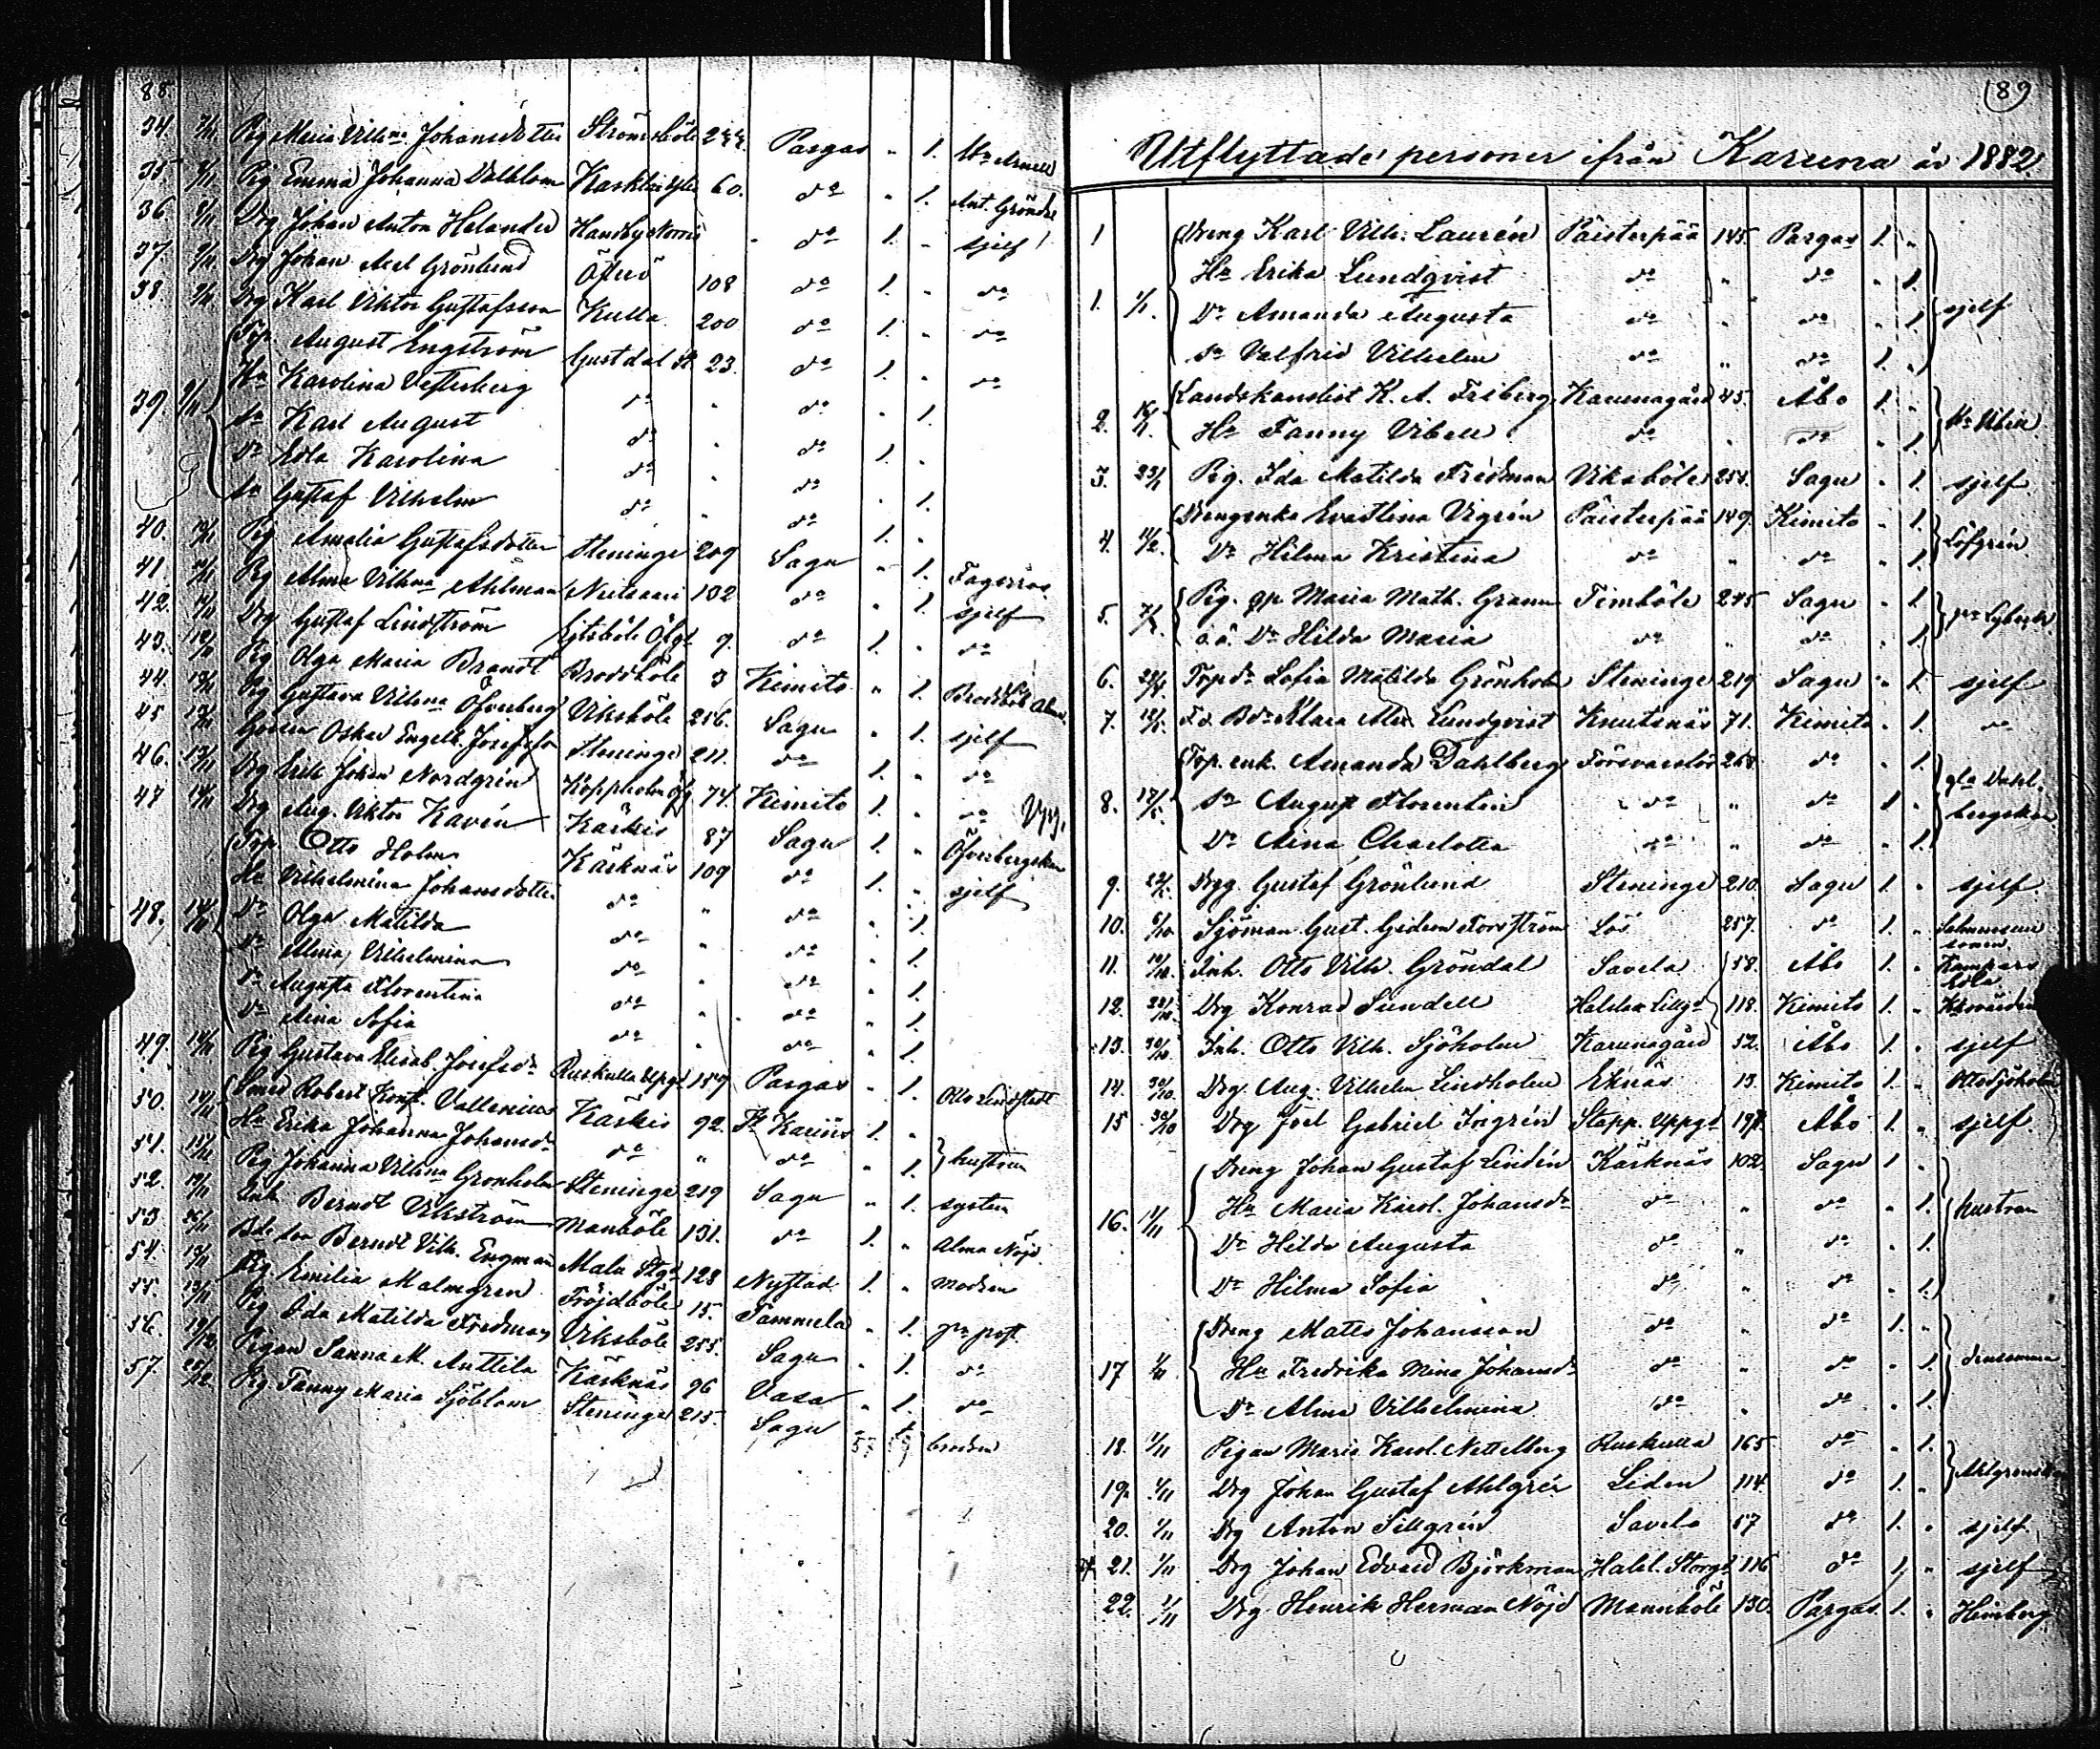 88
34 Pig Maria Vilhma Johansdotter Strömsböle 244. Pargas " 1.
35 Pig Emma Johanna Dalblom 60. do " 1. Ant. Gröndal
36. Drg Johan Anton Helander Hansby Norrs " do 1. " sjelf
37. Drg Johan Axel Grönlund Öfverö 108 do 1. " do
38. Drg Karl Viktor Gustafsson Kulla 200 do 1. " do
Torp August Engström Gustdal St. 23. do 1. " do
Hu Karolina Vesterberg do " do " 1.
39. 9/11 Sn Karl August do " do 1. "
Dr Edla Karolina do " do " 1.
Sn Gustaf Vilhelm do " do 1. "
40. Pig Amalia Gustafsdotter Steninge 209 Sagu " 1. Fagerros
41. Pig Alma Vilhma Ahlman 102 do " 1. sjelf
42. Drg Gustaf Lindström 9. do 1. " do
43. Pig Olga Maria Brandt Broddböle 3 Kimito " 1.
44. Pig Gustava Vilhma Öfverberg Viksböle 256. Sagu " 1. sjelf
45 Oskar Engelb. Josefsson Steninge 211. do 1. " do
46. Drg Erik Johan Nordgrén Koppholm 74. Kimito 1. " do
47 Drg Aug. Viktor Kavén Kärkis 87 Sagu 1. " Öfverbergskan
Torp Otto Holm Kärknäs 109 do 1. " sjelf
Hu Vilhelmina Johansdotter do " do " 1.
48. 14/11 Dr Olga Matilda do " do " 1.
Dr Alma Vilhelmina do " do " 1.
Dr Augusta Florentina do " do " 1.
Dr Aina Sofia do " do " 1.
49. 14/11 Pig Gustava Elisab. Josefsdr Ruskulla Upgd 159 Pargas " 1. Otto Lindstedt
50. 14/11 Smed Robert Konst. Vallenius Kärkis 92. St Karins 1. "
Hu Erika Johanna Johansdr do " do " 1. hustrun
51. Pig Johanna Vilhma Grönholm Steninge 219 Sagu " 1. system
52. Inh. Berndt Vikström Manböle 131. do 1. " Alma Nöjd
53 Bde son Berndt Vilh. Engman Mala Stgd 128 Nystad 1. " modren
54. Pig Emilia Malmgren Fröjdböle 15. Tammela " 1. pr post
55. Pig Ida Matilda Fredman Viksböle 255. Sagu " 1. do
56. Pigan Sanna M. Anttila Kärknäs 96 Vasa " 1. do
57. Pig Fanny Maria Sjöblom Steninge 215. Sagu " 1. brodren
189
Utflyttade personer ifrån Karuna år 1882
1 Dreng Karl Vilh. Laurén Päisterpää 145. Pargas 1. "
Hu Erika Lundqvist do " do " 1.
1. 1/1. Dr Amanda Augusta do " do " 1. sjelf
Sn Valfrid Vilhelm do " do 1. "
Landskanslist K. A. Friberg Karunagård 45. Åbo 1. "
2. Hu Fanny Vibell do " do " 1.
3. 23/1 Pig. Ida Matilda Fredman Viksböle 255. Sagu " 1. sjelf
Drengenka Evastina Vigrén Päisterpää 149. Kimito " 1.
4. 11/2. Dr Hilma Kristina do " do " 1. Löfgrén
Pig. gp Maria Math. Grann Fimböle 245. Sagu " 1.
5. o.ä. Dr Hilda Maria do " do " 1.
6. Torpdr Sofia Matilda Grönholm Steninge 219 Sagu " 1. sjelf
7. F.d. Bdr Klara Alex. Lundqvist Knutsnäs 71. Kimito " 1. do
Torp. enk. Amanda Dahlberg Försvarslös 268. do " 1.
8. 17/5. Sn August Florentin do " do 1 " gla Dahlbergskan
Dr Aina Charlotta do " do " 1.
9. Drg Gustaf Grönlund Steninge 210. Sagu 1. " sjelf
10. 6/10 Sjöman Gust. Gideon Forsström Lös 257. do 1. "
11. 10/10. Inh. Otto Vilh. Gröndal Savela 58. Åbo 1. "
12. 20/10. Drg Konrad Sundell Halslax Lillgd 118. Kimito 1. "
13. 30/10 Inh. Otto Vilh. Sjöholm Karunagård 52. Åbo 1. " sjelf
14. 30/10. Drg. Aug. Vilhelm Lindholm Eknäs 13. Kimito 1. " Otto Sjöholm
15 30/10 Drg Joel Gabriel Irgrén Stapp. Uppgd 191. Åbo 1. " sjelf.
Dreng Johan Gustaf Lindén Kärknäs 102. Sagu 1 "
16. 1/11 Hu Maria Karol. Johansdr do " do " 1. hustrun
Dr Hilda Augusta do " do " 1.
Dr Hilma Sofia do " do " 1.
Dreng Matts Johansson do " do 1. "
17 1/11. Hu Fredrika Mina Johansdr do " do " 1. densamma
Dr Alma Vilhelmina do " do " 1.
18. 1/11 Pigan Maria Karol. Nettelberg Ruskulla 165 do " 1.
19. 1/11 Drg Johan Gustaf Ahlgrén Liden 114 do 1. "
20. 1/11 Drg Anton Sillgrén Savela 57 do 1. " sjelf.
21. 1/11 Drg Johan Edvard Björkman Halsl. Storgd 116 do 1. " sjelf
22. 1/11 Drg Henrik Herman Nöjd Mannböle 130. Pargas 1. " Heimberg